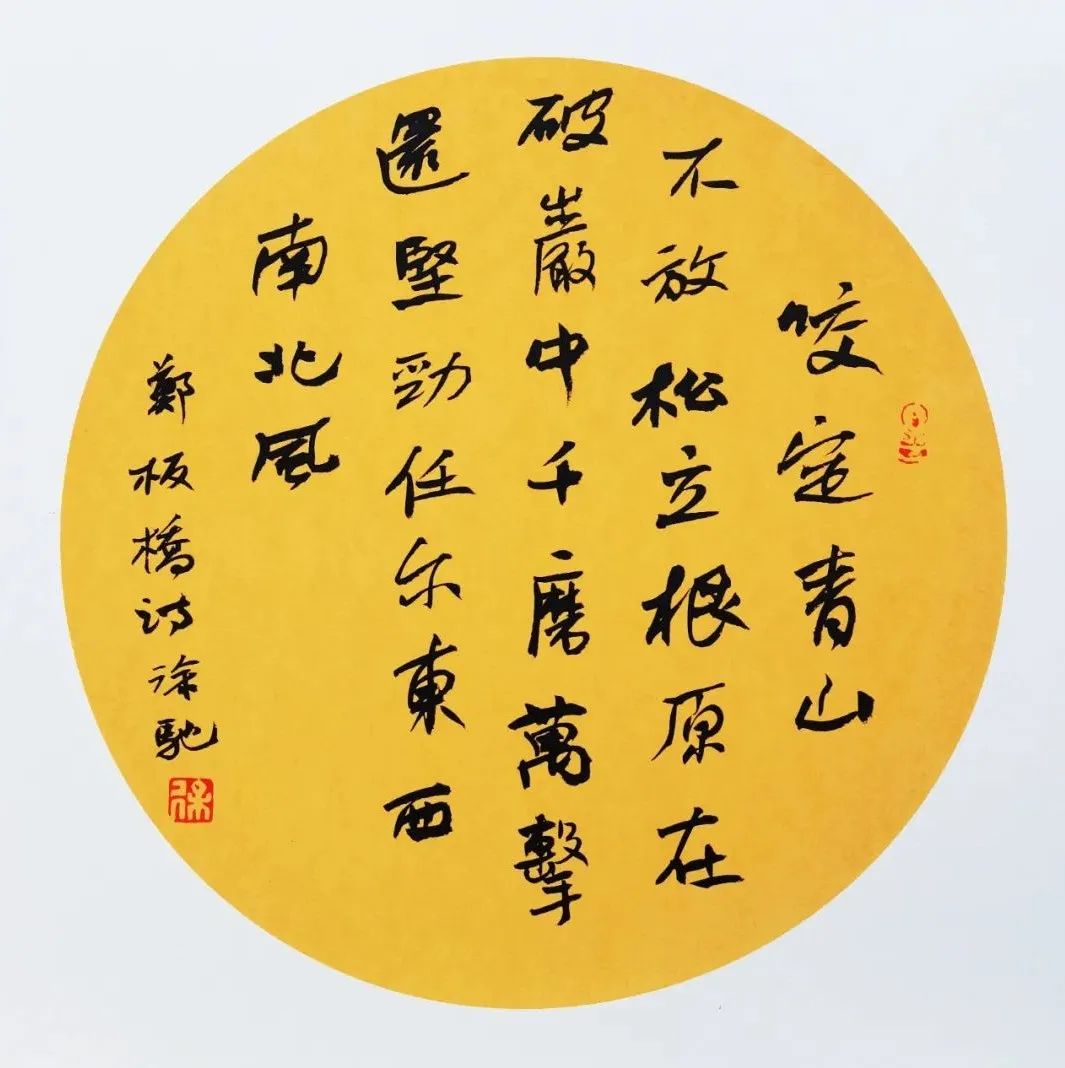 咬定青山
不放松立根原在
破巖中千磨萬擊
還堅勁任尔東西
南北風
鄭板橋诗徐馳
徐